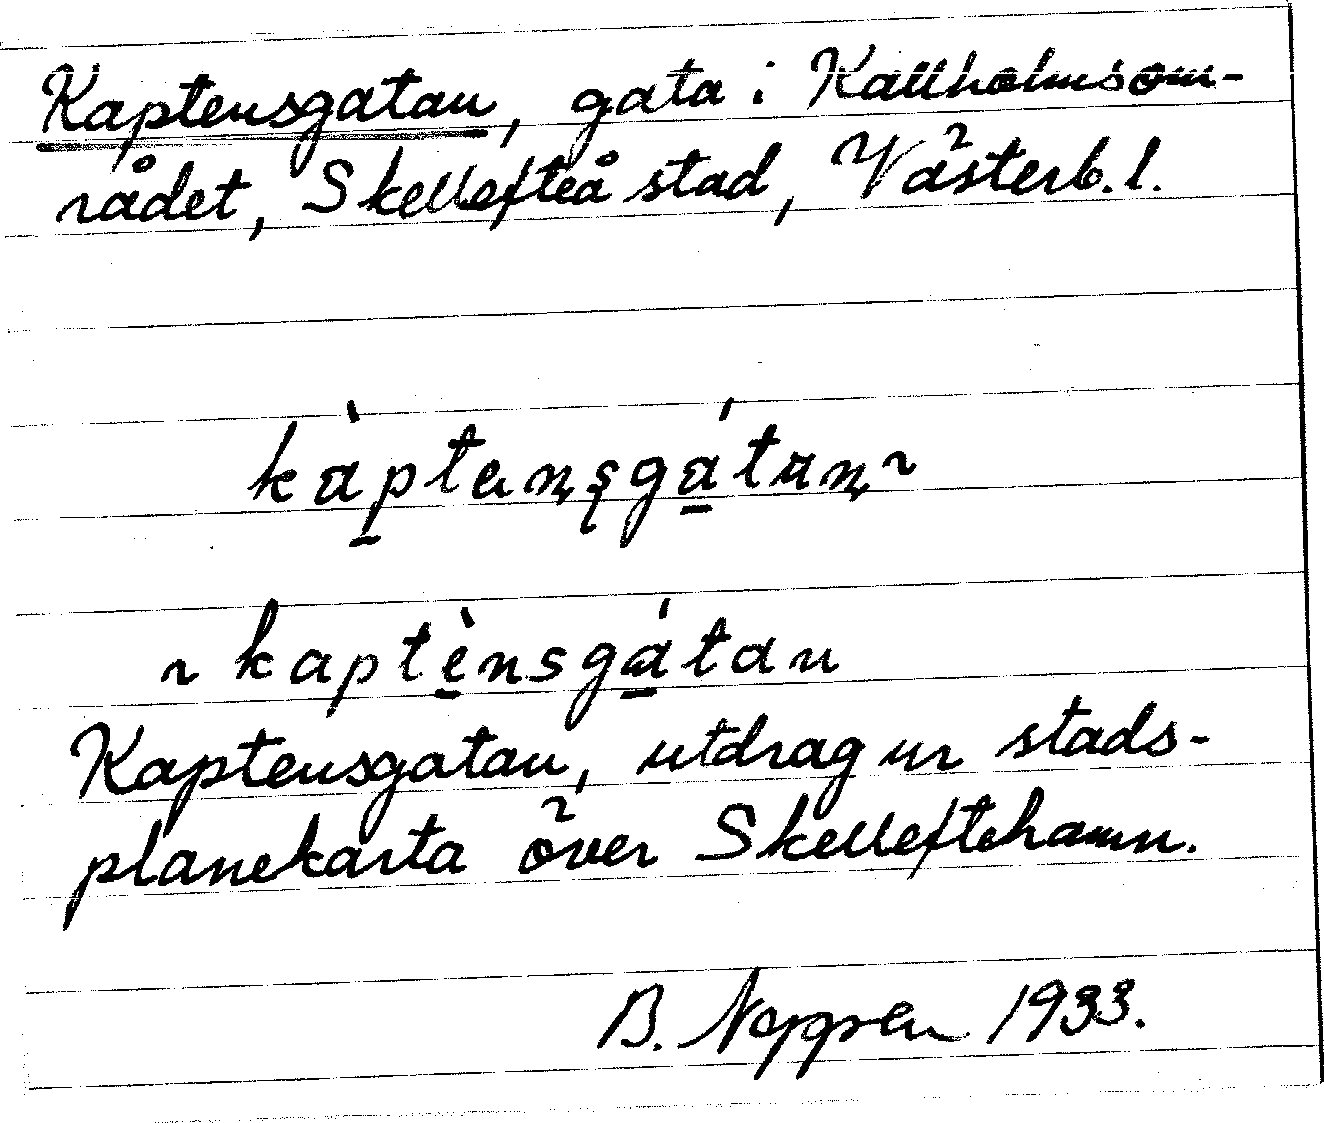 Kaptensgatan, gata i Kallholmsom-
rådet, Skellefteå stad, Västerb. l.
kàptensgátan ~
~ kaptènsgátan
Kaptensgatan, utdrag ur stads-
planekarta över Skelleftehamn.
B. 1933.